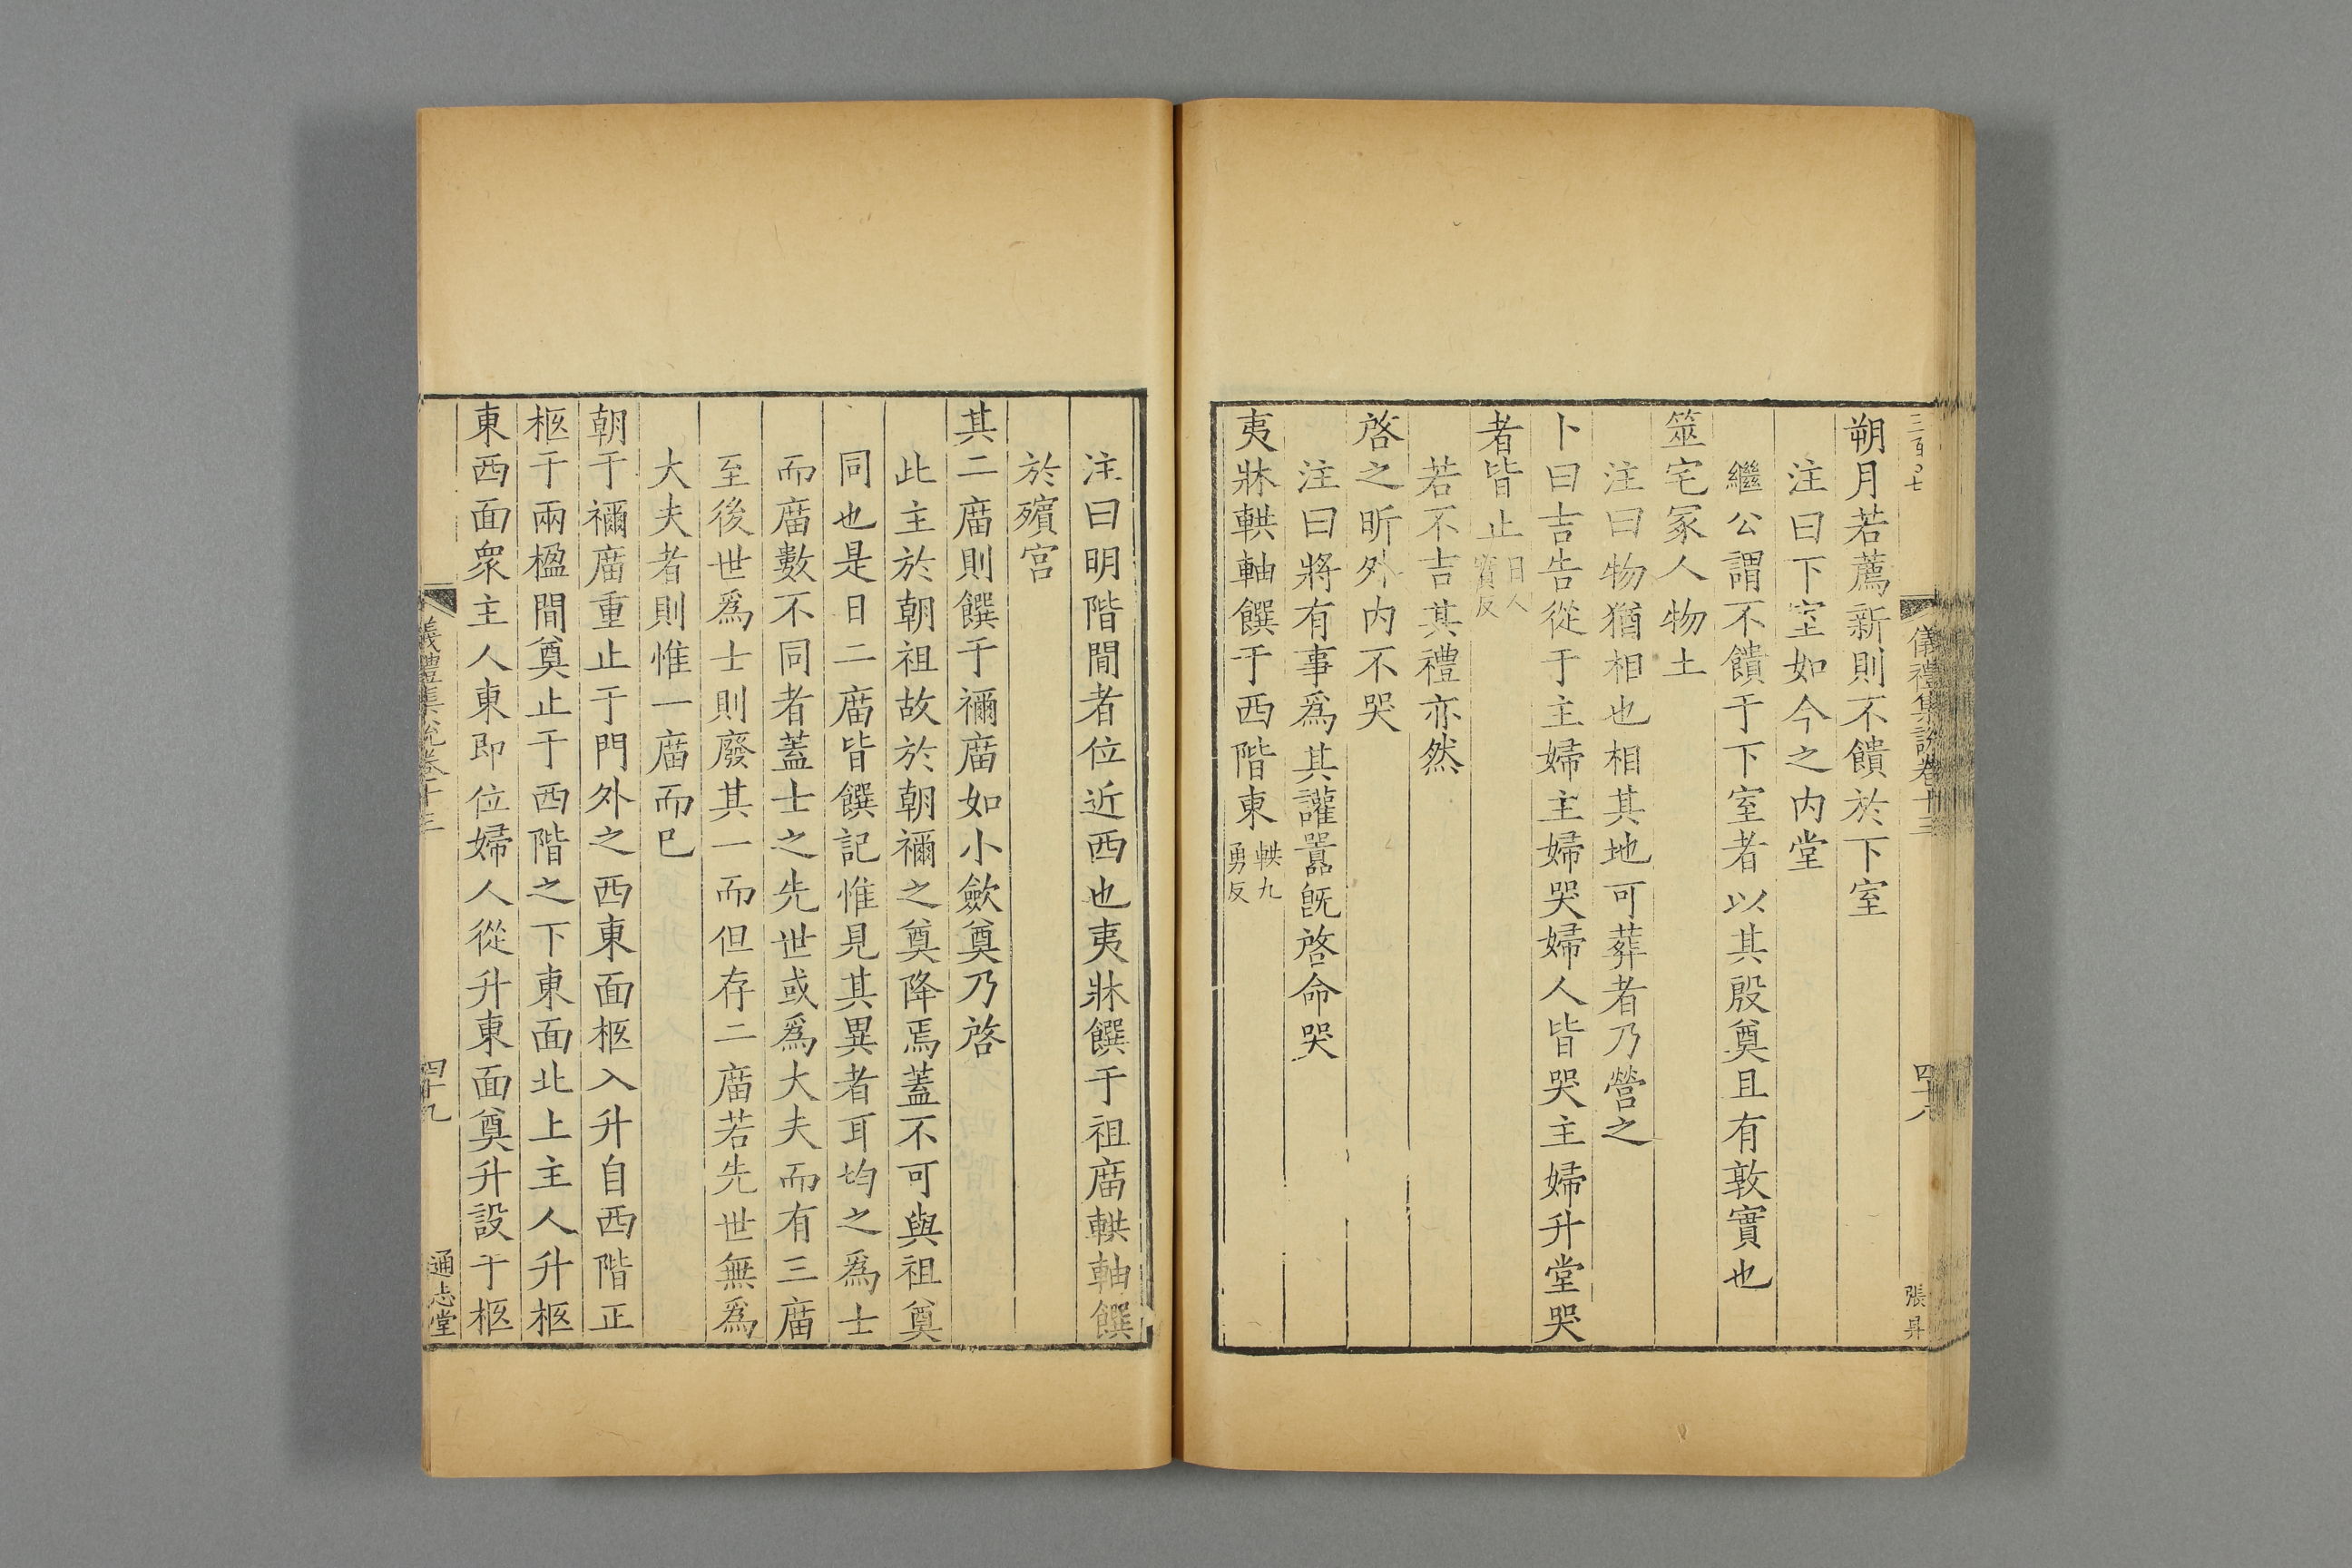 儀禮集說卷十三
四十八
張昇
朔月若薦新則不饋於下室
注曰下室如今之內堂
繼公謂不饋于下室者以其殷奠且有敦實也
筮宅冢人物土
注曰物猶相也相其地可葬者乃營之
卜曰吉告從于主婦主婦哭婦人皆哭主婦升堂哭
者皆止
若不吉其禮亦然
啓之昕外内不哭
注曰將有事爲其讙囂旣啓命哭
夷牀輁軸饌于西階東輁九勇反
注曰明階間者位近西也夷牀饌于祖庿輁軸饌
於殯宮
其二庿則饌于禰庿如小歛奠乃啓
此主於朝祖故於朝禰之奠降焉蓋不可與祖奠
同也是日二庿皆饌記惟見其異者耳均之爲士
而庿數不同者蓋士之先世或爲大夫而有三庿
至後世爲士則廢其一而但存二庿若先世無爲
大夫者則惟一庿而已
朝于禰庿重止于門外之西東面柩入升自西階正
柩于兩楹間奠止于西階之下東面北上主人升柩
東西面衆主人東即位婦人從升東面奠升設于柩
儀禮集說卷十三
四十九
通志堂